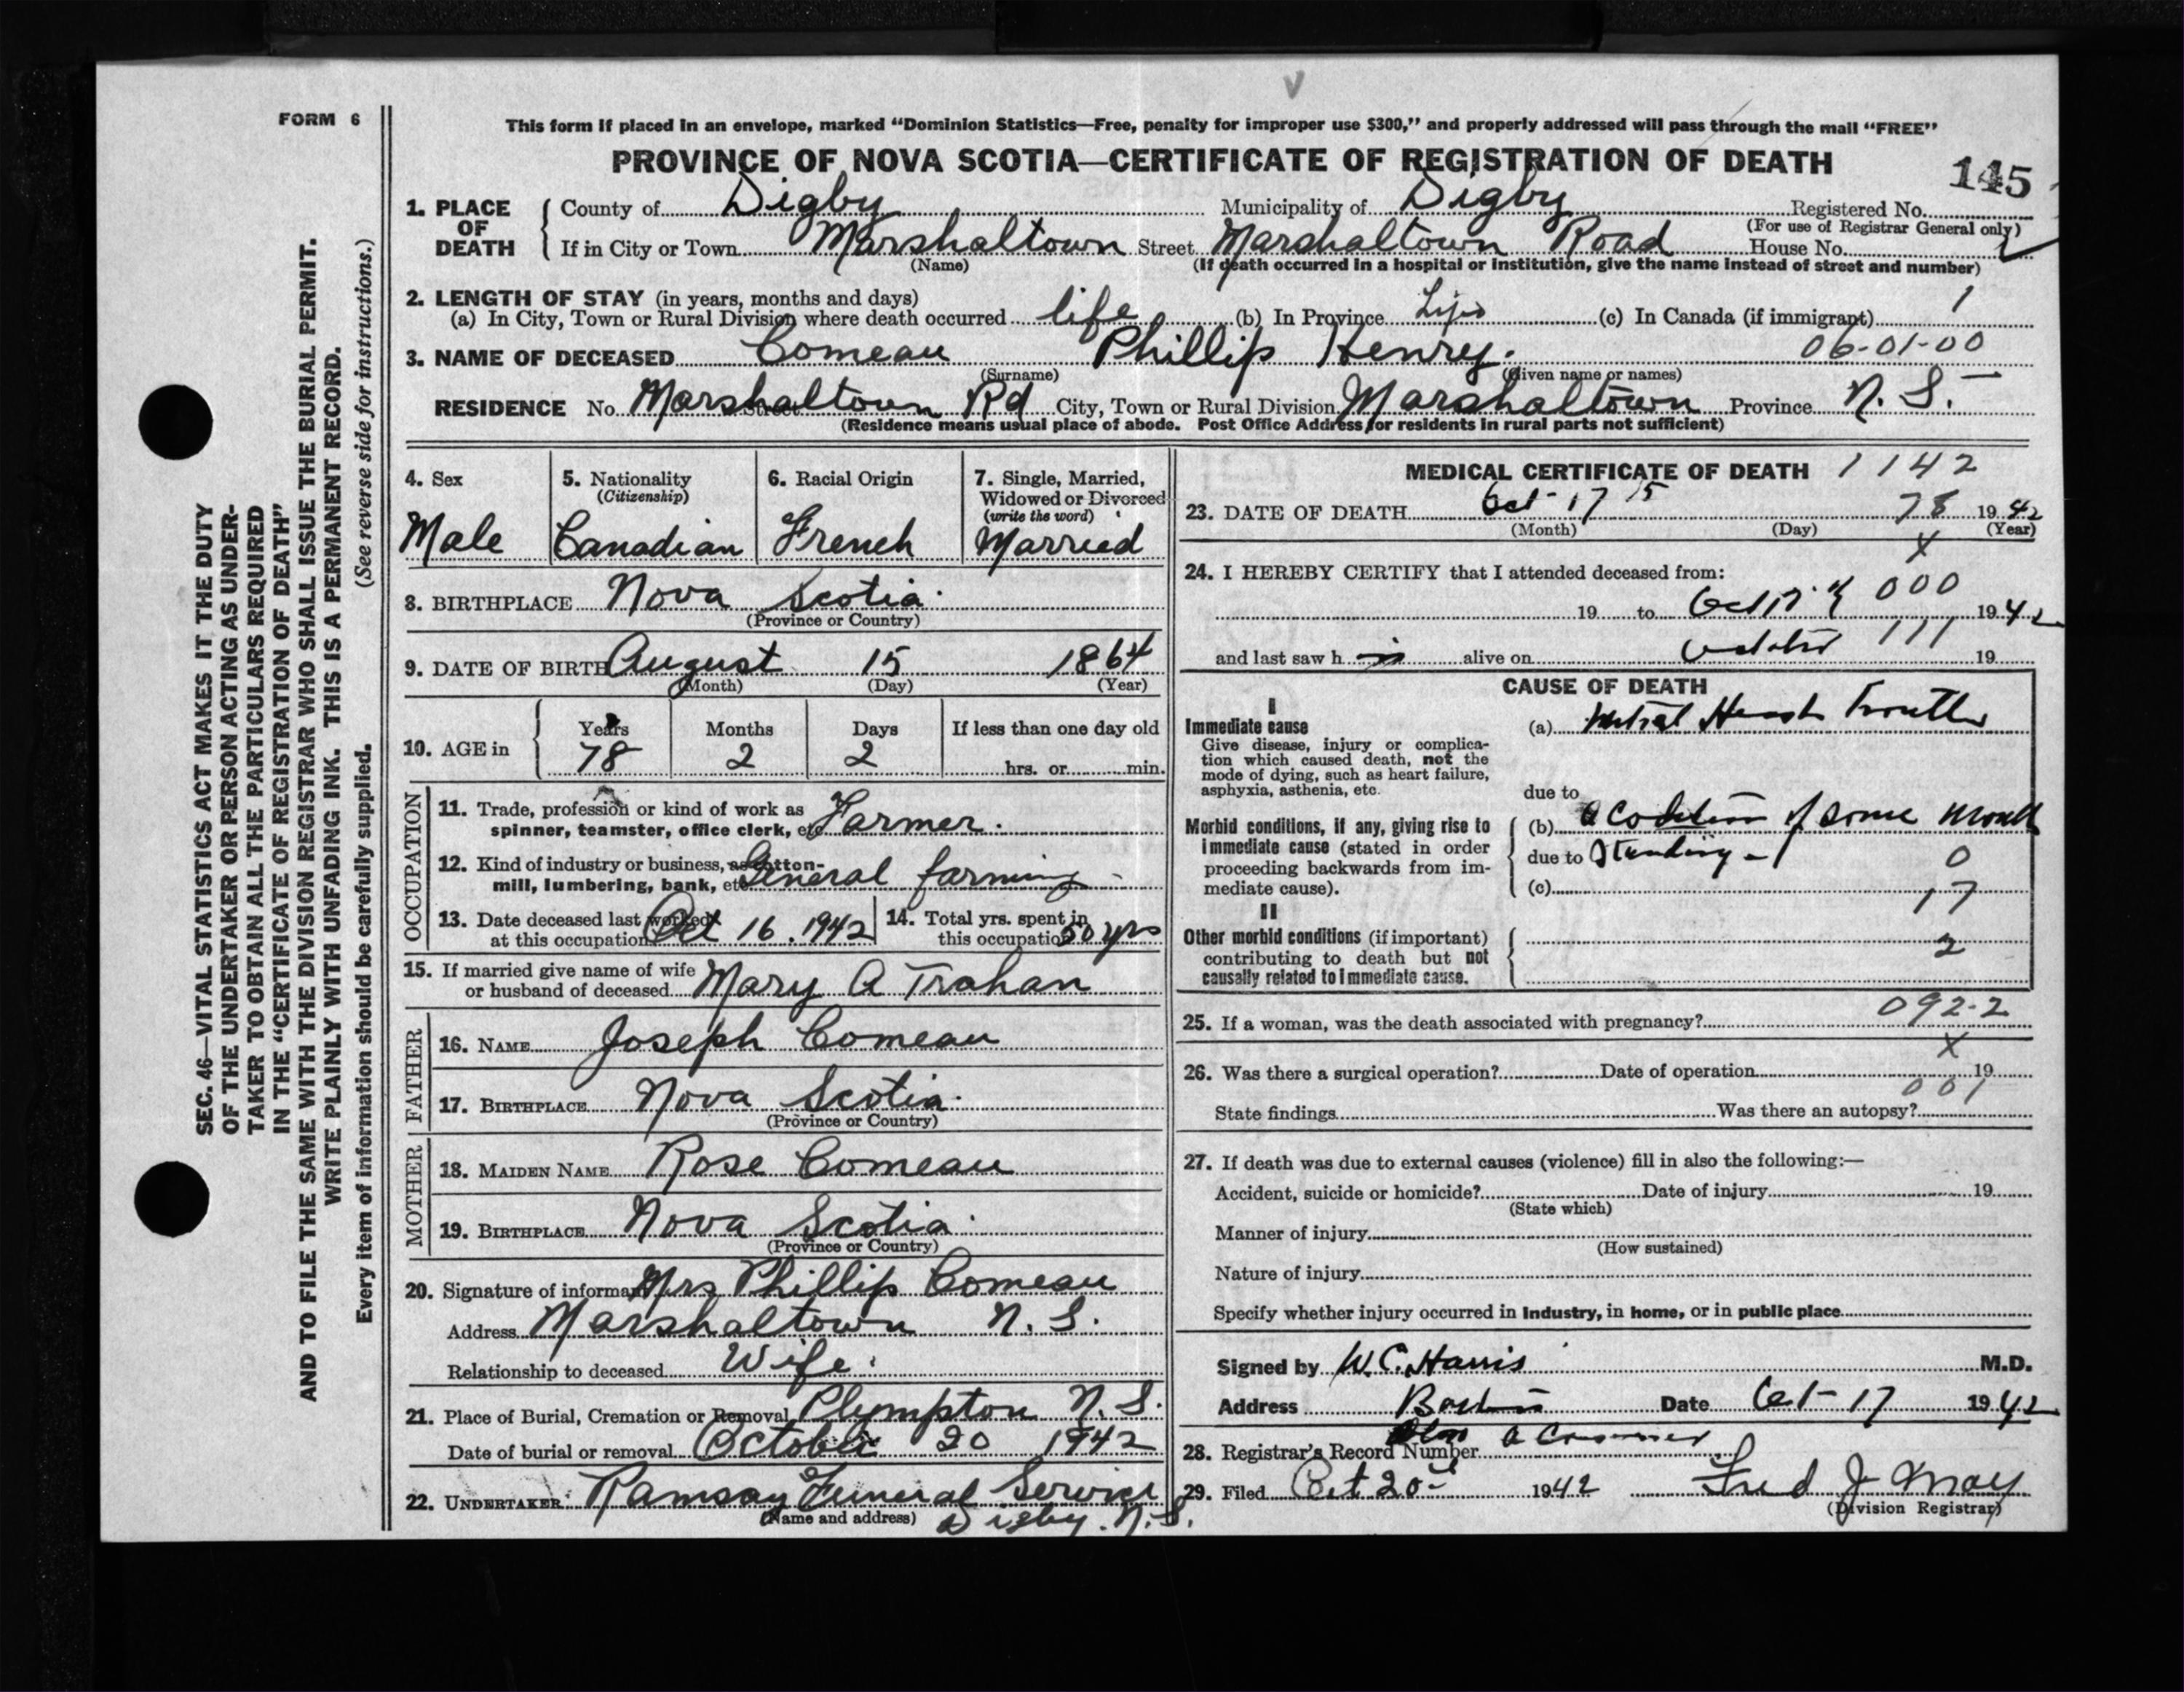 FORM 6
This form if placed in an envelope, marked “Dominion Statistics—Free, penalty for improper use $300,” and properly addressed will pass through the mail “FREE”
PROVINCE OF NOVA SCOTIA—CERTIFICATE OF REGISTRATION OF DEATH
145
1. PLACE OF DEATH County of Digby Municipality of Digby Registered No.
(For use of Registrar General only)
If in City or Town Marshaltown Street Marshaltown Road House No.
(Name) (If death occurred in a hospital or institution, give the name instead of street and number)
2. LENGTH OF STAY (in years, months and days)
(a) In City, Town or Rural Division where death occurred life (b) In Province Life (c) In Canada (if immigrant) 1
3. NAME OF DECEASED Comeau Phillip Henry. 06-01-00
(Surname) (Given name or names)
RESIDENCE No. Marshaltown Rd Street City, Town or Rural Division Marshaltown Province N. S.
(Residence means usual place of abode. Post Office Address for residents in rural parts not sufficient)
4. Sex
Male
5. Nationality
(Citizenship)
Canadian
6. Racial Origin
French
7. Single, Married,
Widowed or Divorced
(write the word)
Married
8. BIRTHPLACE Nova Scotia
(Province or Country)
9. DATE OF BIRTH August 15 1864
(Month) (Day) (Year)
10. AGE in Years Months Days If less than one day old
78 2 2 hrs. or min.
OCCUPATION
11. Trade, profession or kind of work as
spinner, teamster, office clerk, etc. Farmer.
12. Kind of industry or business, as cotton-
mill, lumbering, bank, etc. General farming
13. Date deceased last worked
at this occupation Oct 16. 1942
14. Total yrs. spent in
this occupation 50 yrs
15. If married give name of wife
or husband of deceased Mary A Trahan
FATHER
16. NAME Joseph Comeau
17. BIRTHPLACE Nova Scotia
(Province or Country)
MOTHER
18. MAIDEN NAME Rose Comeau
19. BIRTHPLACE Nova Scotia
(Province or Country)
20. Signature of informant Mrs Phillip Comeau
Address Marshaltown N. S.
Relationship to deceased Wife.
21. Place of Burial, Cremation or Removal Plympton N. S.
Date of burial or removal October 20 1942
22. UNDERTAKER Ramsay Funeral Service
(Name and address) Digby. N. S.
MEDICAL CERTIFICATE OF DEATH 1142
23. DATE OF DEATH Oct 17 15 78 1942
(Month) (Day) (Year)
X
24. I HEREBY CERTIFY that I attended deceased from:
19 to Oct 17 000 1942
and last saw h alive on 111 19
CAUSE OF DEATH
I
Immediate cause
Give disease, injury or complica-
tion which caused death, not the
mode of dying, such as heart failure,
asphyxia, asthenia, etc.
(a) Mitral Heart Trouble
due to
Morbid conditions, if any, giving rise to
immediate cause (stated in order
proceeding backwards from im-
mediate cause).
(b) a condition of some months
due to standing - 0
(c) 17
II
Other morbid conditions (if important)
contributing to death but not
causally related to immediate cause.
2
092-2
25. If a woman, was the death associated with pregnancy?
X
26. Was there a surgical operation? Date of operation 19
001
State findings Was there an autopsy?
27. If death was due to external causes (violence) fill in also the following:—
Accident, suicide or homicide? Date of injury 19
(State which)
Manner of injury
(How sustained)
Nature of injury
Specify whether injury occurred in industry, in home, or in public place
Signed by W. C. Harris M.D.
Address Date Oct-17 1942
28. Registrar's Record Number
29. Filed Oct 20 1942 Fred J May
(Division Registrar)
SEC. 46—VITAL STATISTICS ACT MAKES IT THE DUTY
OF THE UNDERTAKER OR PERSON ACTING AS UNDER-
TAKER TO OBTAIN ALL THE PARTICULARS REQUIRED
IN THE “CERTIFICATE OF REGISTRATION OF DEATH”
AND TO FILE THE SAME WITH THE DIVISION REGISTRAR WHO SHALL ISSUE THE BURIAL PERMIT.
WRITE PLAINLY WITH UNFADING INK. THIS IS A PERMANENT RECORD.
Every item of information should be carefully supplied. (See reverse side for instructions.)